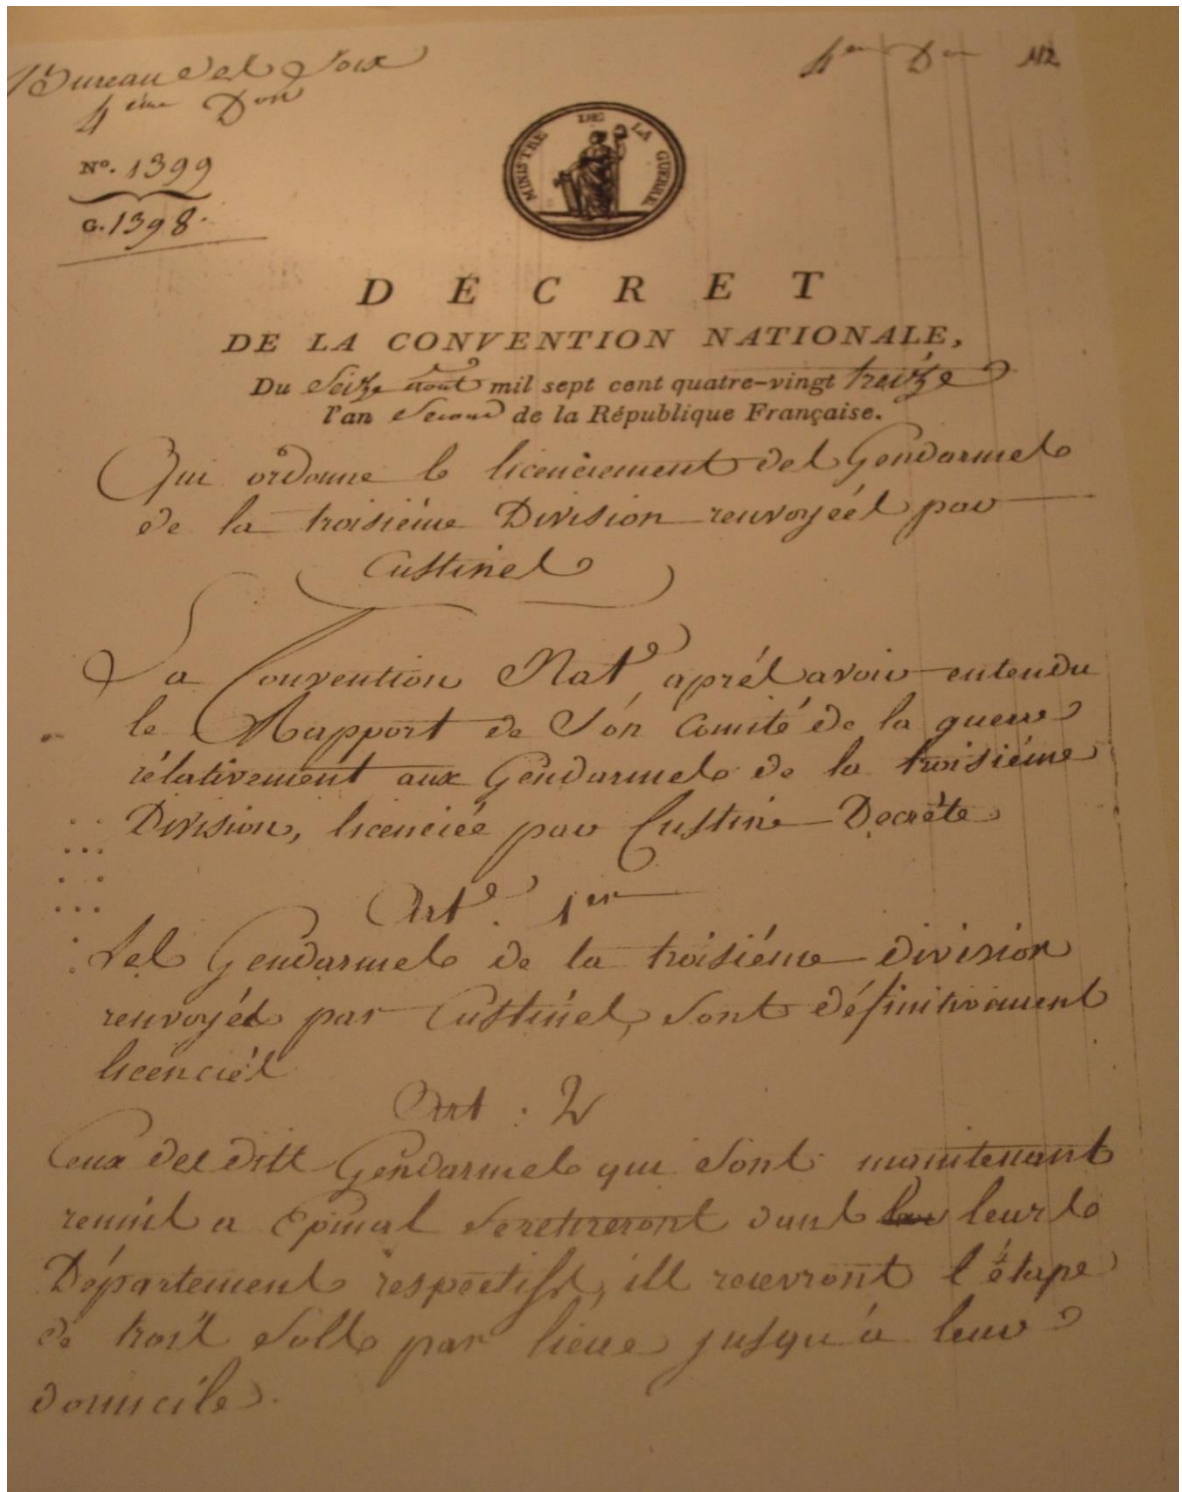 Bureau des Loix
4ème Don
4eme Don 112
No. 1399
G. 1398.
MINISTRE DE LA GUERRE
DÉCRET
DE LA CONVENTION NATIONALE,
Du Seize aout mil sept cent quatre-vingt treize
l'an Second de la République Française.
Qui ordonne le licenciement des Gendarmes
de la troisiéme Division renvoyéés par
Custines
La Convention Nat.e aprés avoir entendu
le Rapport de Son Comité de la guerre
rélativement aux Gendarmes de la troisiéme
Division, licenciée par Custine Decrète
Art.e 1er
Les Gendarmes de la troisiéme division
renvoyés par Custines, sont définitivement
licenciés
Art : 2
Ceux des dits Gendarmes qui sont maintenant
reunis a Epinal se retireront dans leurs
Départements respectifs, ils recevront l'étape
de trois Sols par lieue jusqu'à leur
domicile.